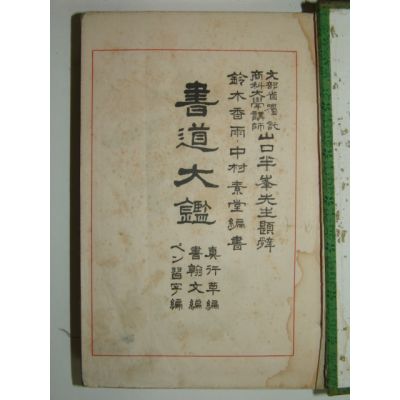 文部省嘱託
商科大学講師
山口半峯先生題辞
鈴木香雨・中村素堂編書
書道大鑑
真行草編
書翰文編
ペン習字編